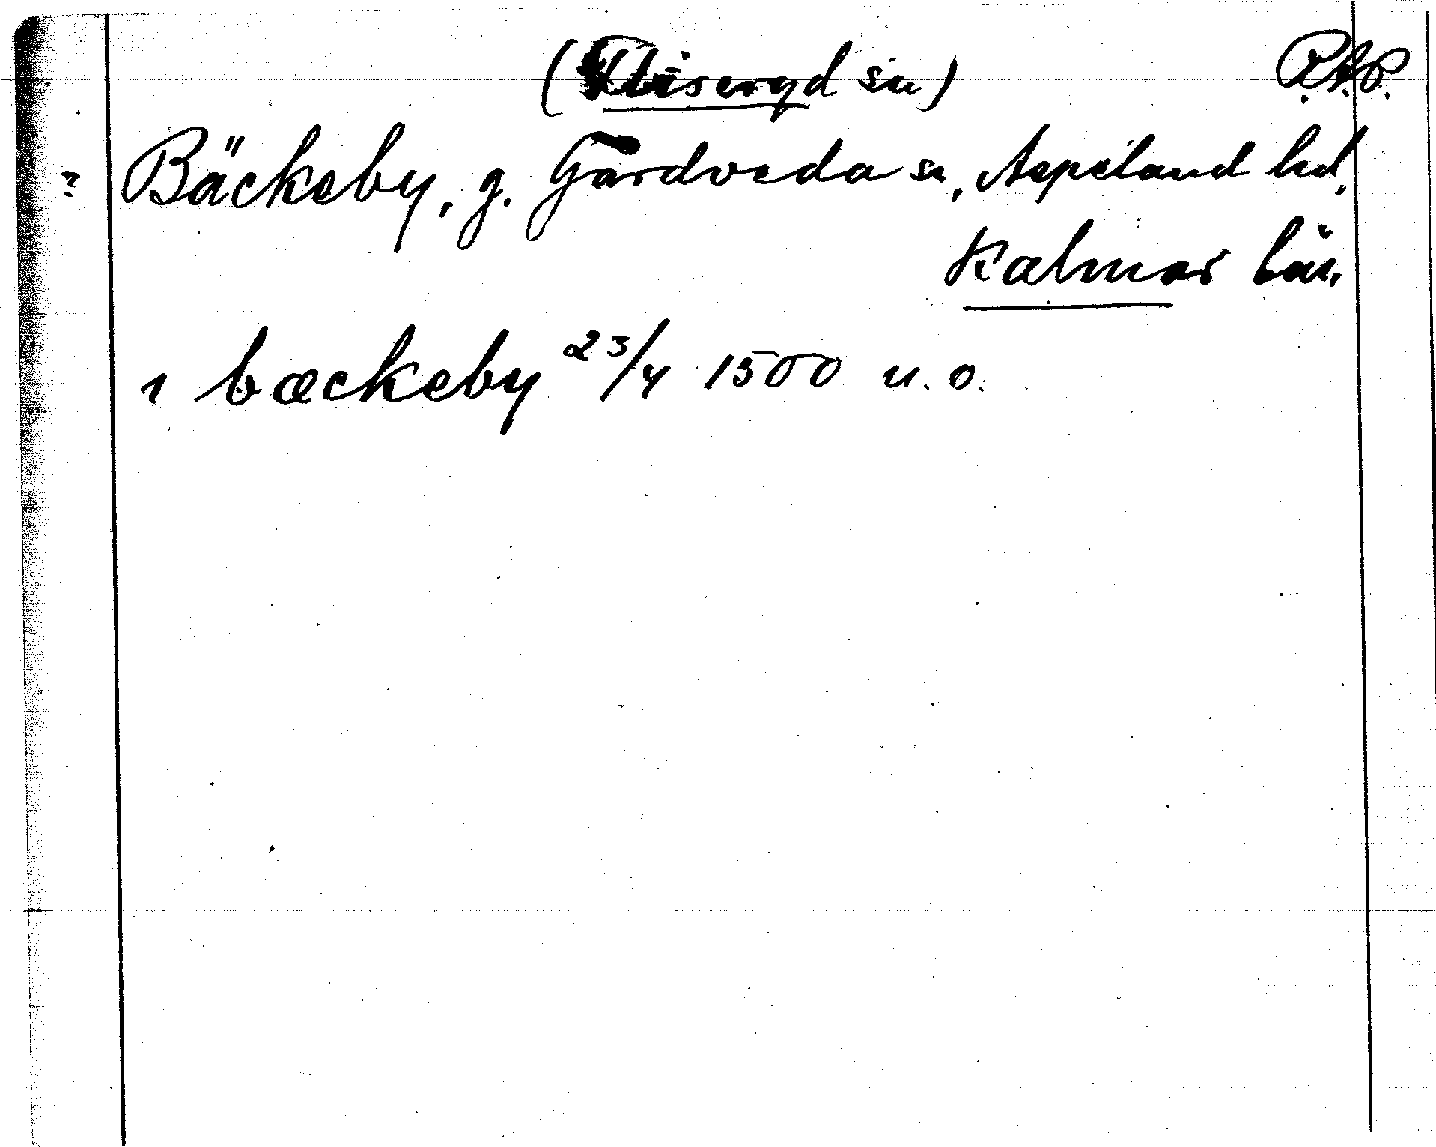 (Fliseryd sn) R.A.P.
? Bäckeby, g. Gårdveda sn, Aspeland hd,
Kalmar län.
i bæckeby 23/4 1500 u. o.